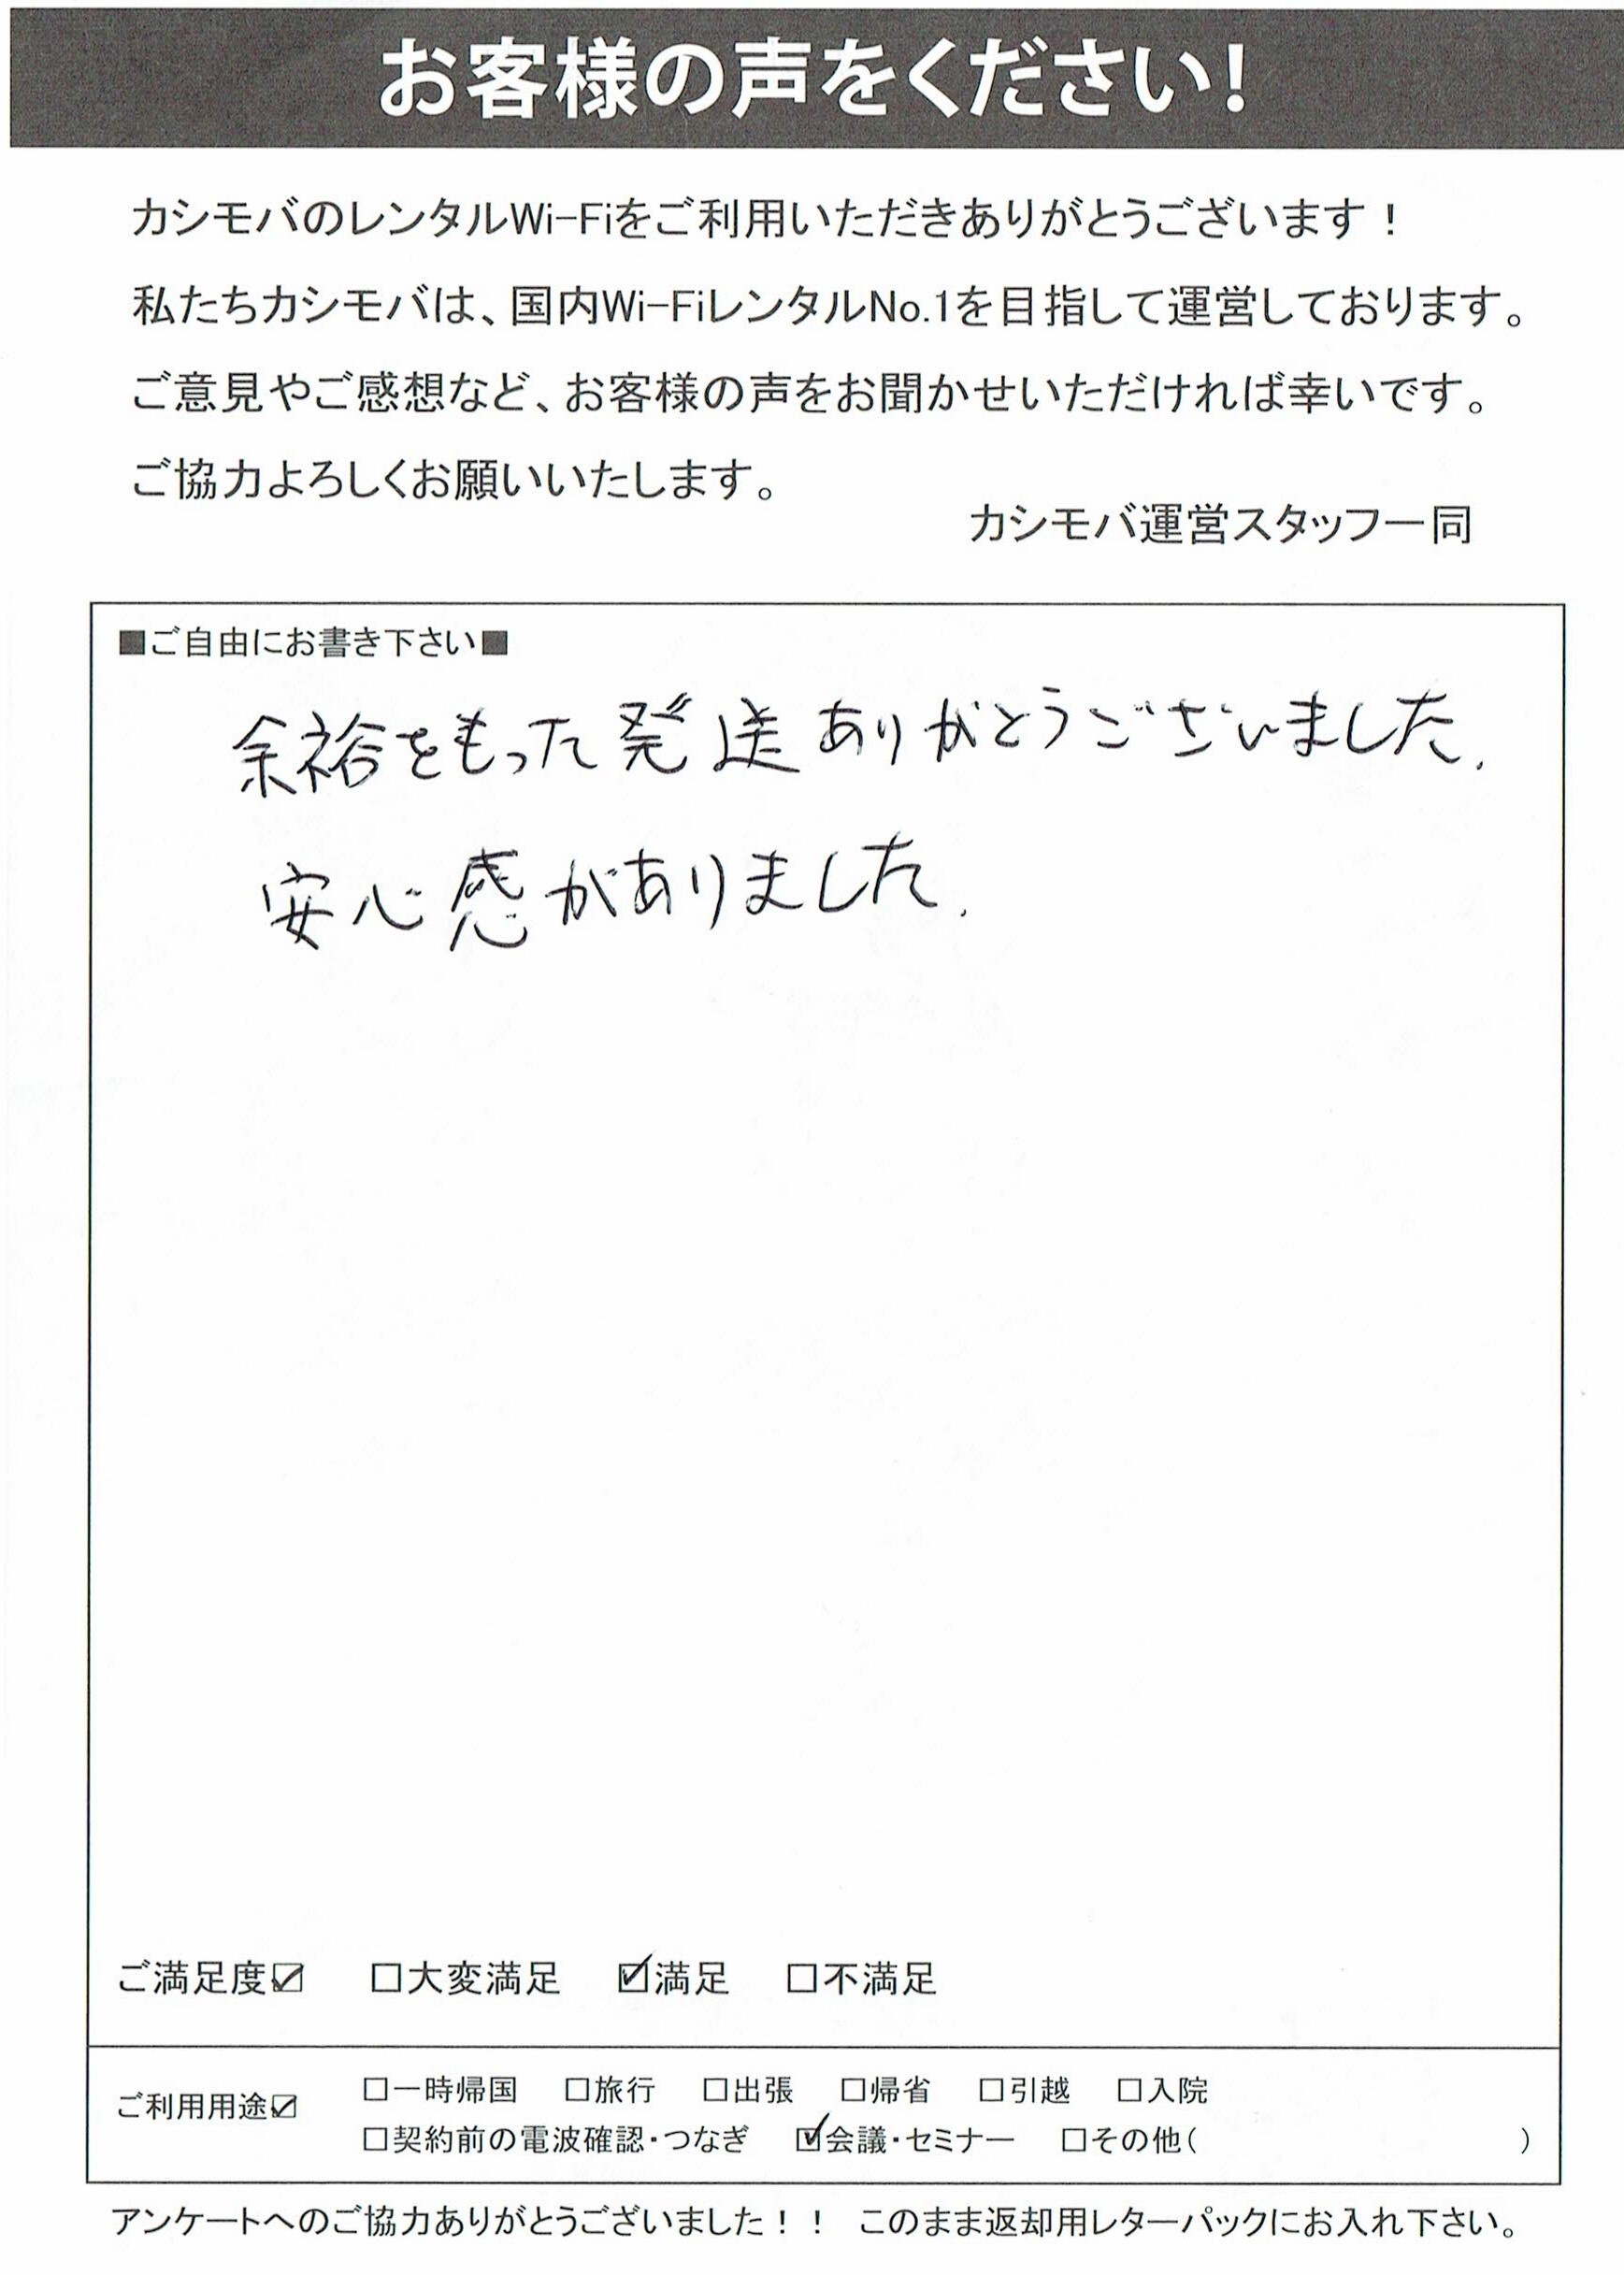 お客様の声をください!
カシモバのレンタルWi-Fiをご利用いただきありがとうございます！
私たちカシモバは、国内Wi-FiレンタルNo.1を目指して運営しております。
ご意見やご感想など、お客様の声をお聞かせいただければ幸いです。
ご協力よろしくお願いいたします。
カシモバ運営スタッフ一同
■ご自由にお書き下さい■
余裕をもった発送ありがとうございました.
安心感がありました.
ご満足度☑ □大変満足 ☑満足 □不満足
ご利用用途☑ □一時帰国 □旅行 □出張 □帰省 □引越 □入院
□契約前の電波確認・つなぎ ☑会議・セミナー □その他( )
アンケートへのご協力ありがとうございました！！ このまま返却用レターパックにお入れ下さい。